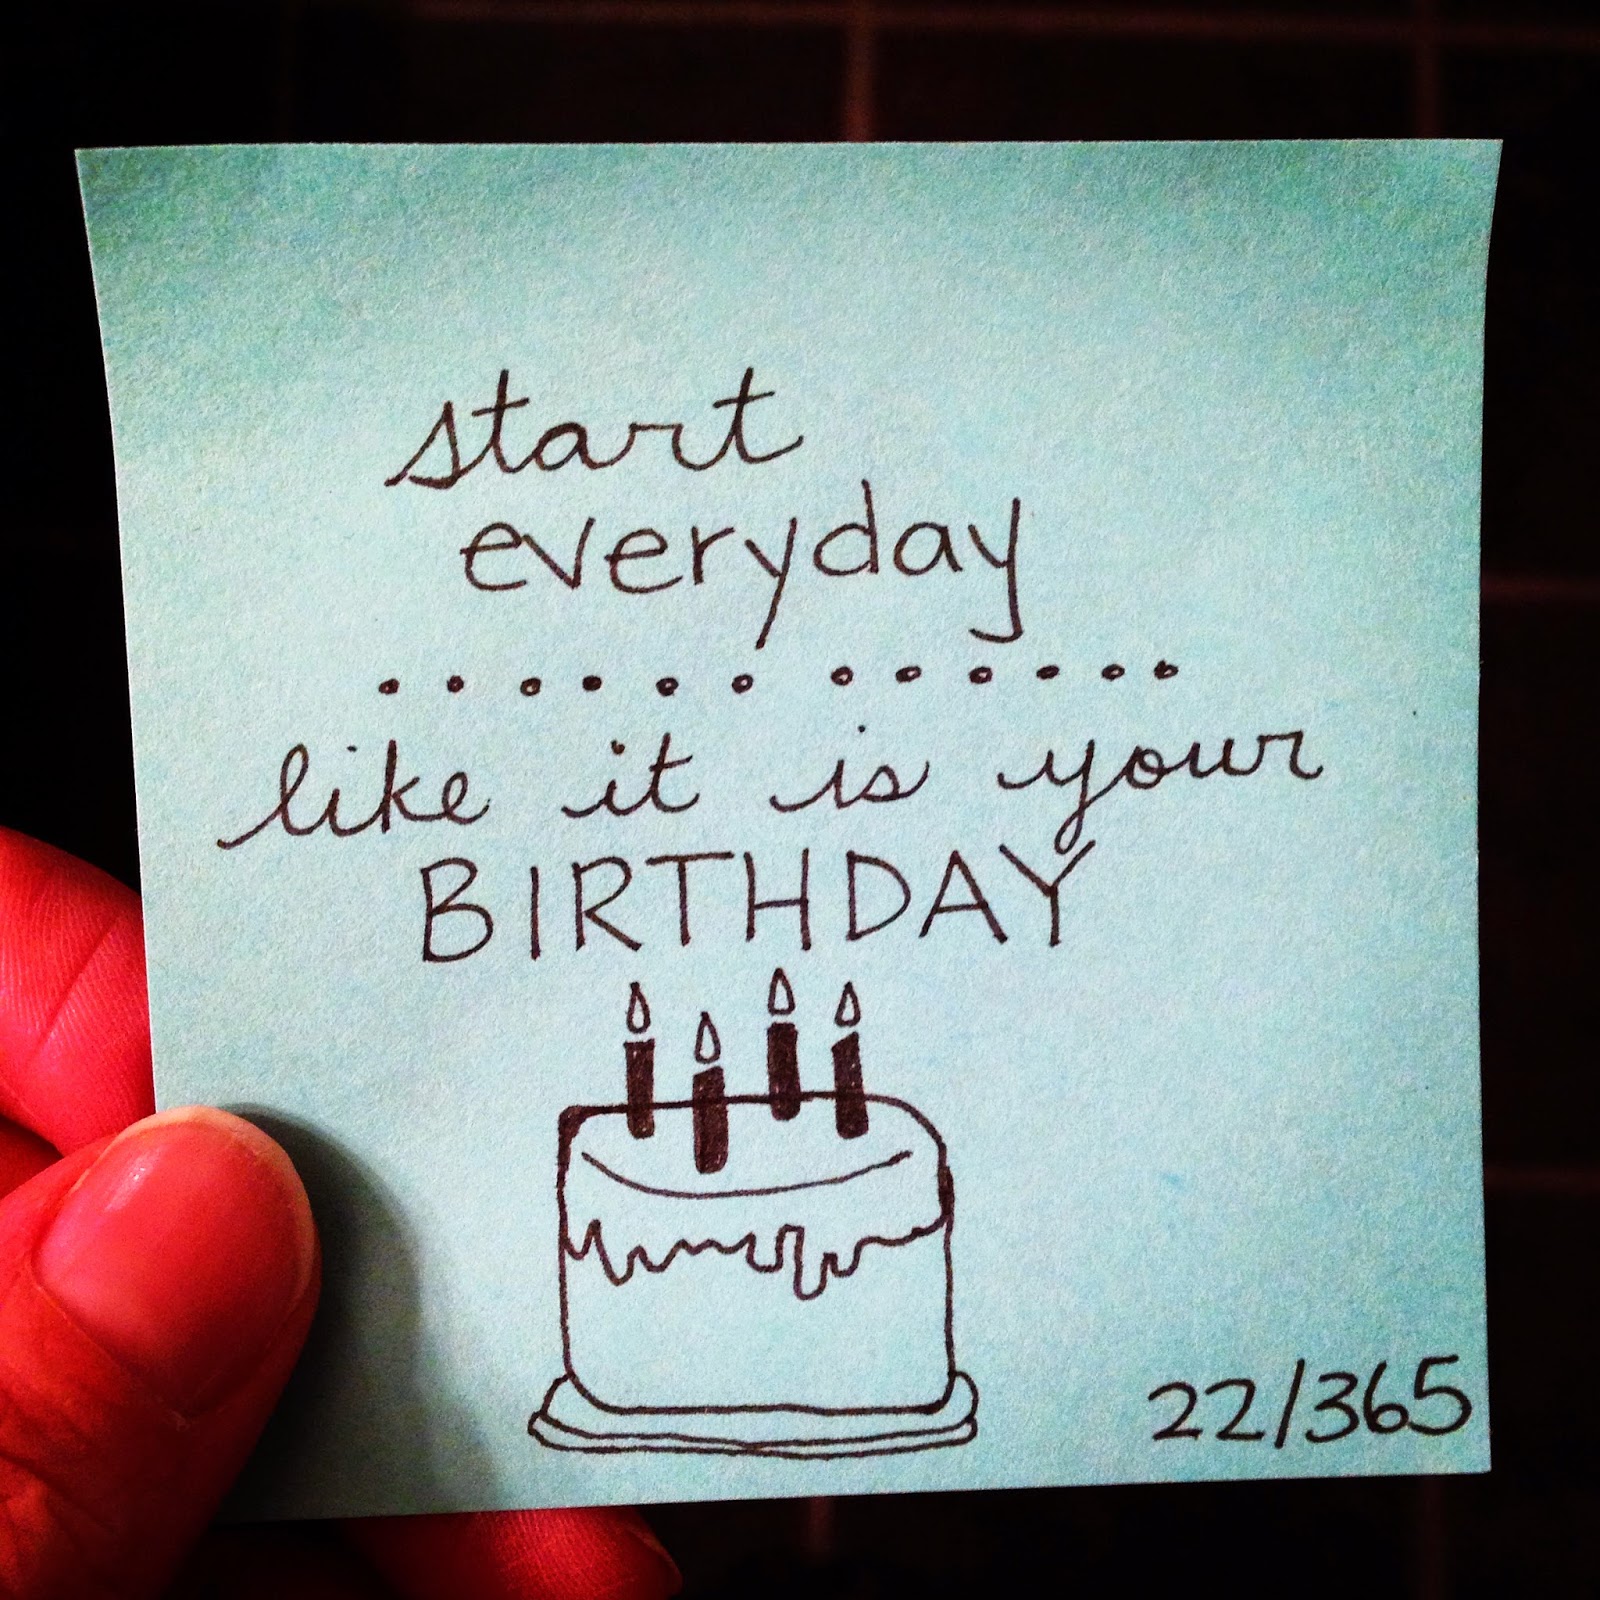 start
everyday
............
like it is your
BIRTHDAY
22/365